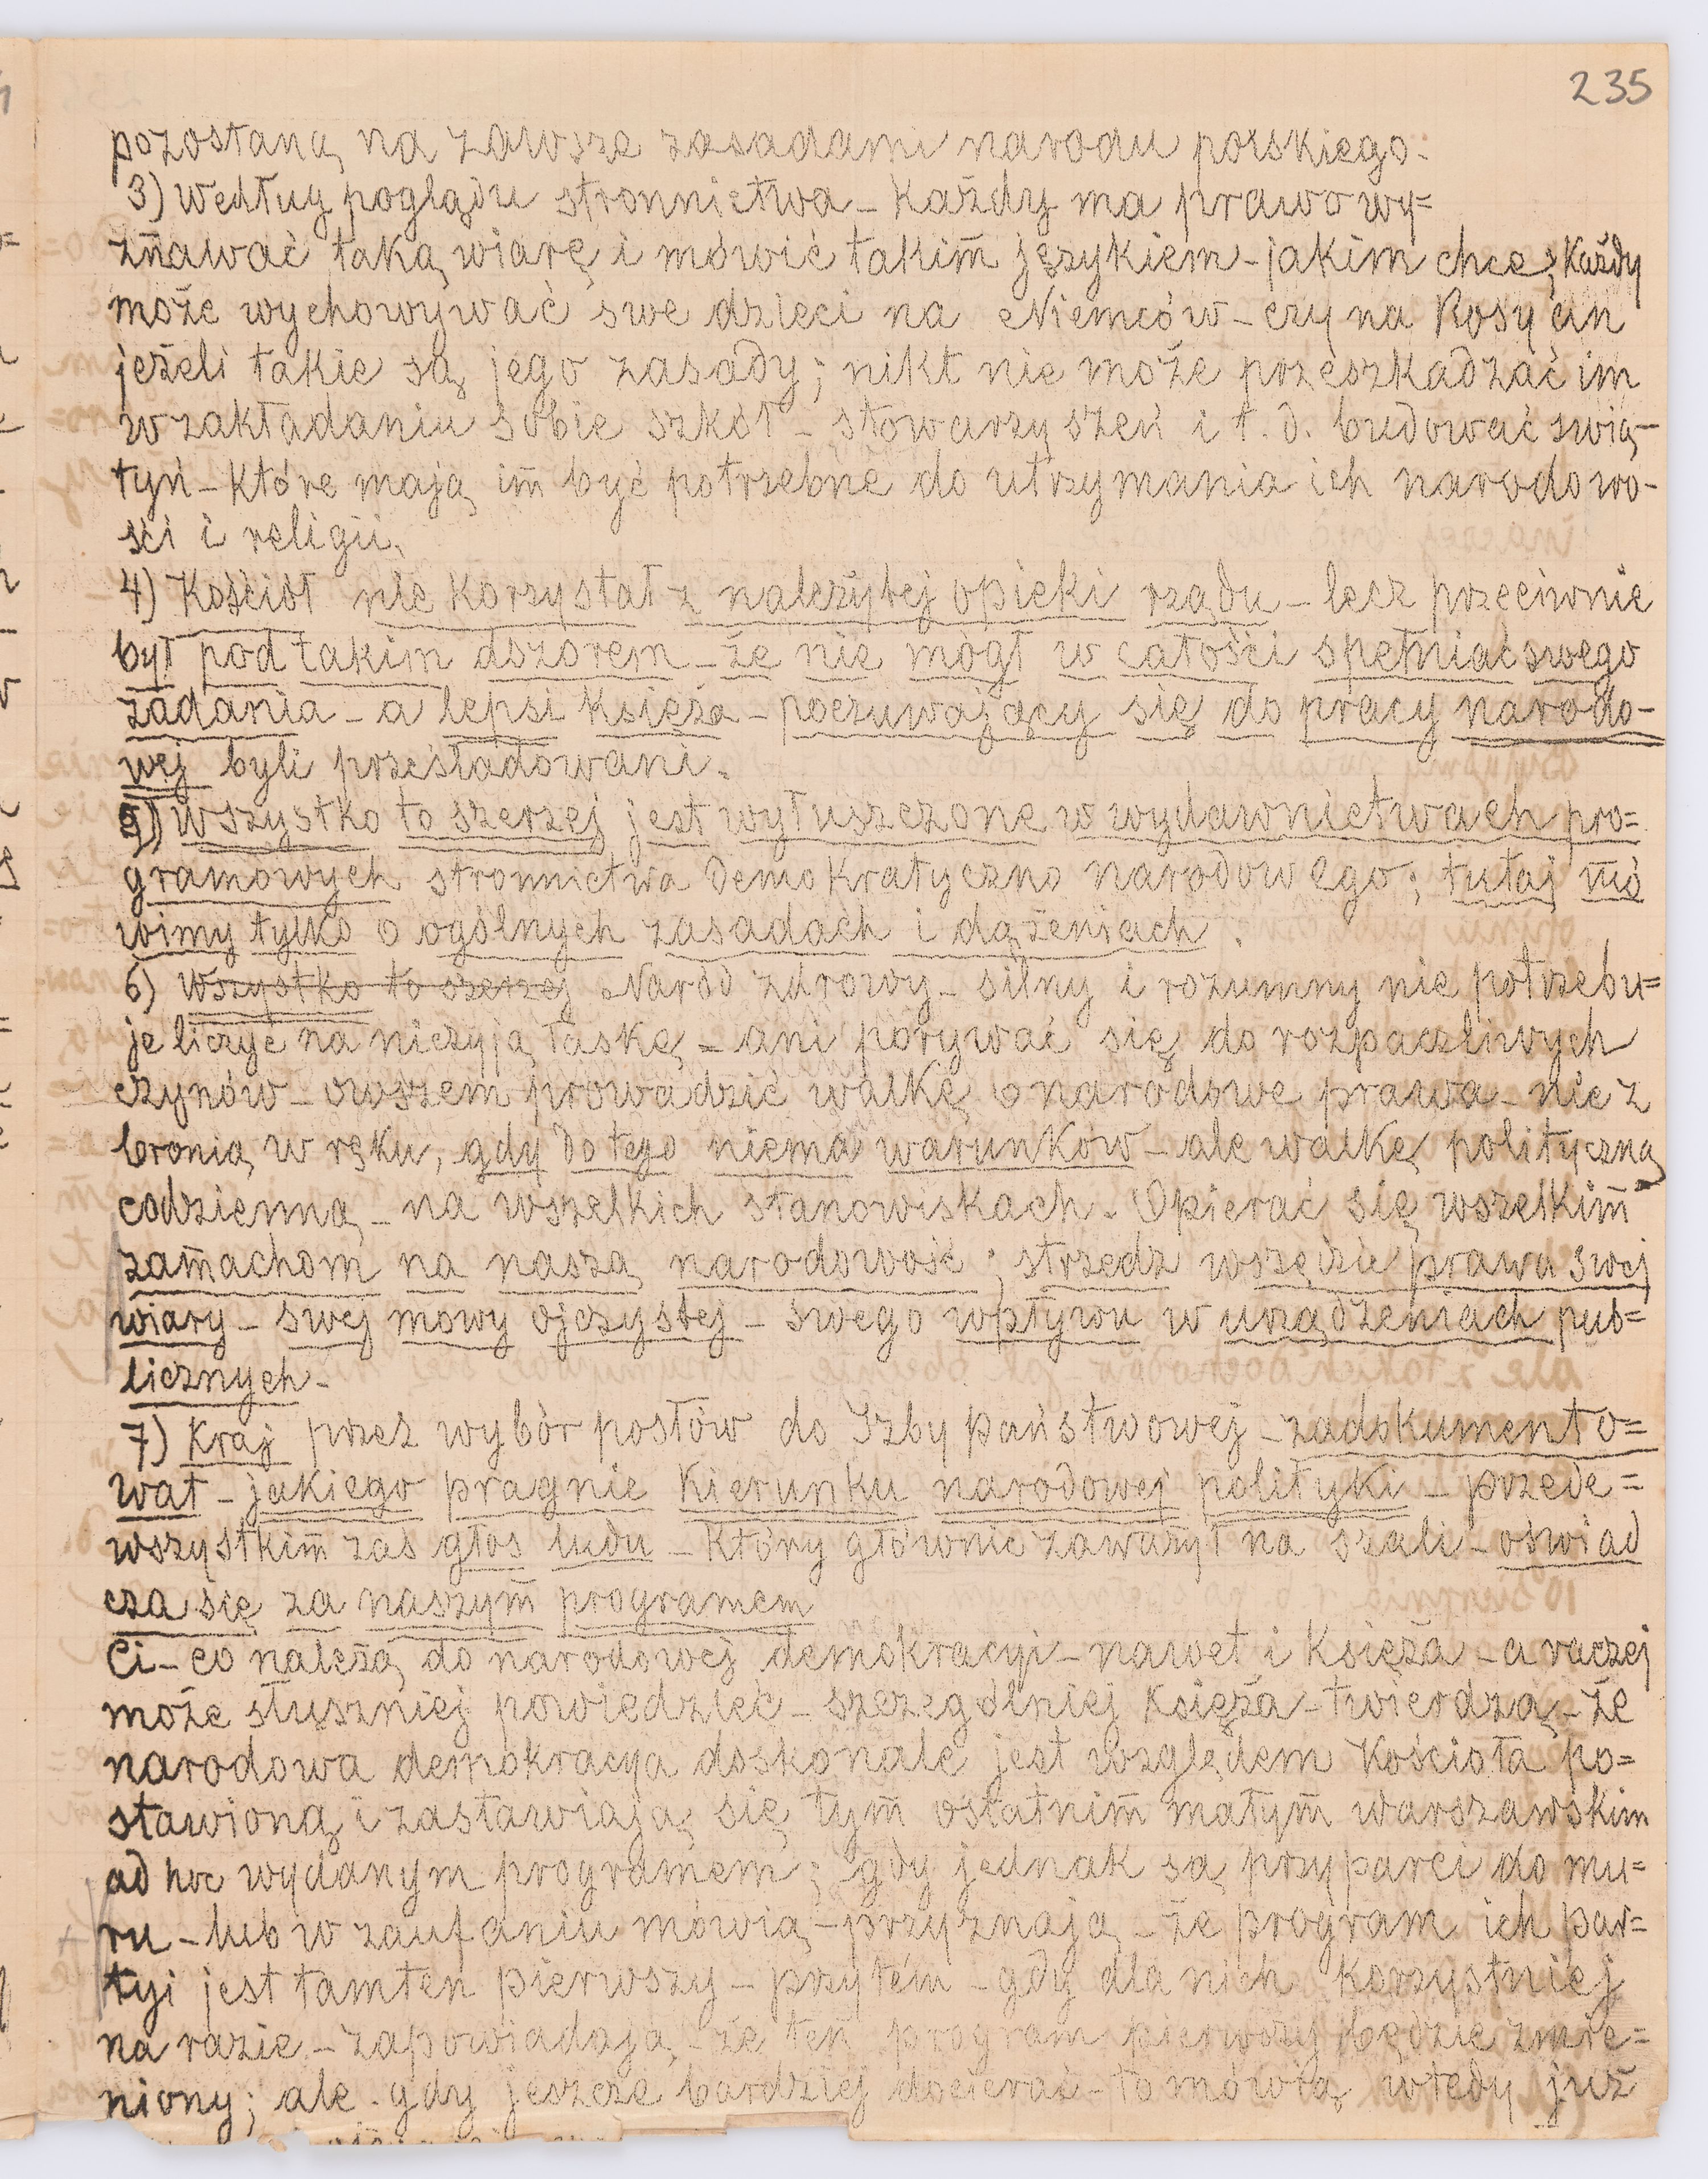 235
pozostaną na zawsze zasadami narodu polskiego.
3) według poglądu stronnictwa – każdy ma prawo wy=
znawać taką wiarę i mówić takim językiem – jakim chce; każdy
może wychowywać swe dzieci na Niemców – czy na Rosyan
jeżeli takie są jego zasady; nikt nie może przeszkadzać im
w zakładaniu sobie szkół – stowarzyszeń i t. d. budować świą–
tyń – które mają im być potrzebne do utrzymania ich narodowo–
ści i religii.
4) Kościół nie korzystał z należytej opieki rządu – lecz przeciwnie
był pod takim dozorem – że nie mógł w całości spełniać swego
zadania – a lepsi księża – poczuwający się do pracy narodo–
wej byli prześladowani.
5) Wszystko to szerzej jest wyłuszczone w wydawnictwach pro=
gramowych stronnictwa Demokratyczno narodowego; tutaj mó
wimy tylko o ogólnych zasadach i dążeniach.
6) Wszystko to szerzej Naród zdrowy – silny i rozumny nie potrzebu=
je liczyć na niczyją łaskę – ani porywać się do rozpaczliwych
czynów – owszem prowadzić walkę o narodowe prawa – nie z
bronią w ręku, gdy do tego niema warunków – ale walkę polityczną
codzienną – na wszelkich stanowiskach. Opierać się wszelkim
zamachom na naszą narodowość; strzedz wszędzie prawa swej
wiary – swej mowy ojczystej – swego wpływu w urządzeniach pub=
licznych –
7) Kraj przez wybór posłów do Izby państwowej – zadokumento=
wał – jakiego pragnie kierunku narodowej polityki – przede=
wszystkim zaś głos ludu – który głównie zaważył na szali – oświad
cza się za naszym programem
Ci – co należą do narodowej demokracyi – nawet i księża – a raczej
może słuszniej powiedzieć – szczególniej księża – twierdzą – że
narodowa demokracya doskonale jest względem Kościoła po=
stawioną i zastawiają się tym ostatnim małym warszawskim
ad hoc wydanym programem; gdy jednak są przyparci do mu=
ru – lub w zaufaniu mówią – przyznają – że program ich par=
tyi jest tamten pierwszy – przytém – gdy dla nich korzystniej
na razie – zapowiadają – że ten program pierwszy będzie zmie=
niony; ale gdy jeszcze bardziej docierać – to mówią wtedy już